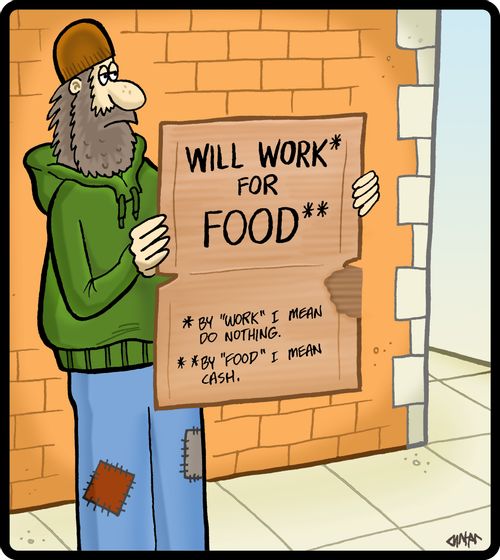 WILL WORK*
FOR
FOOD**
* BY "WORK" I MEAN
DO NOTHING.
**BY "FOOD" I MEAN
CASH.